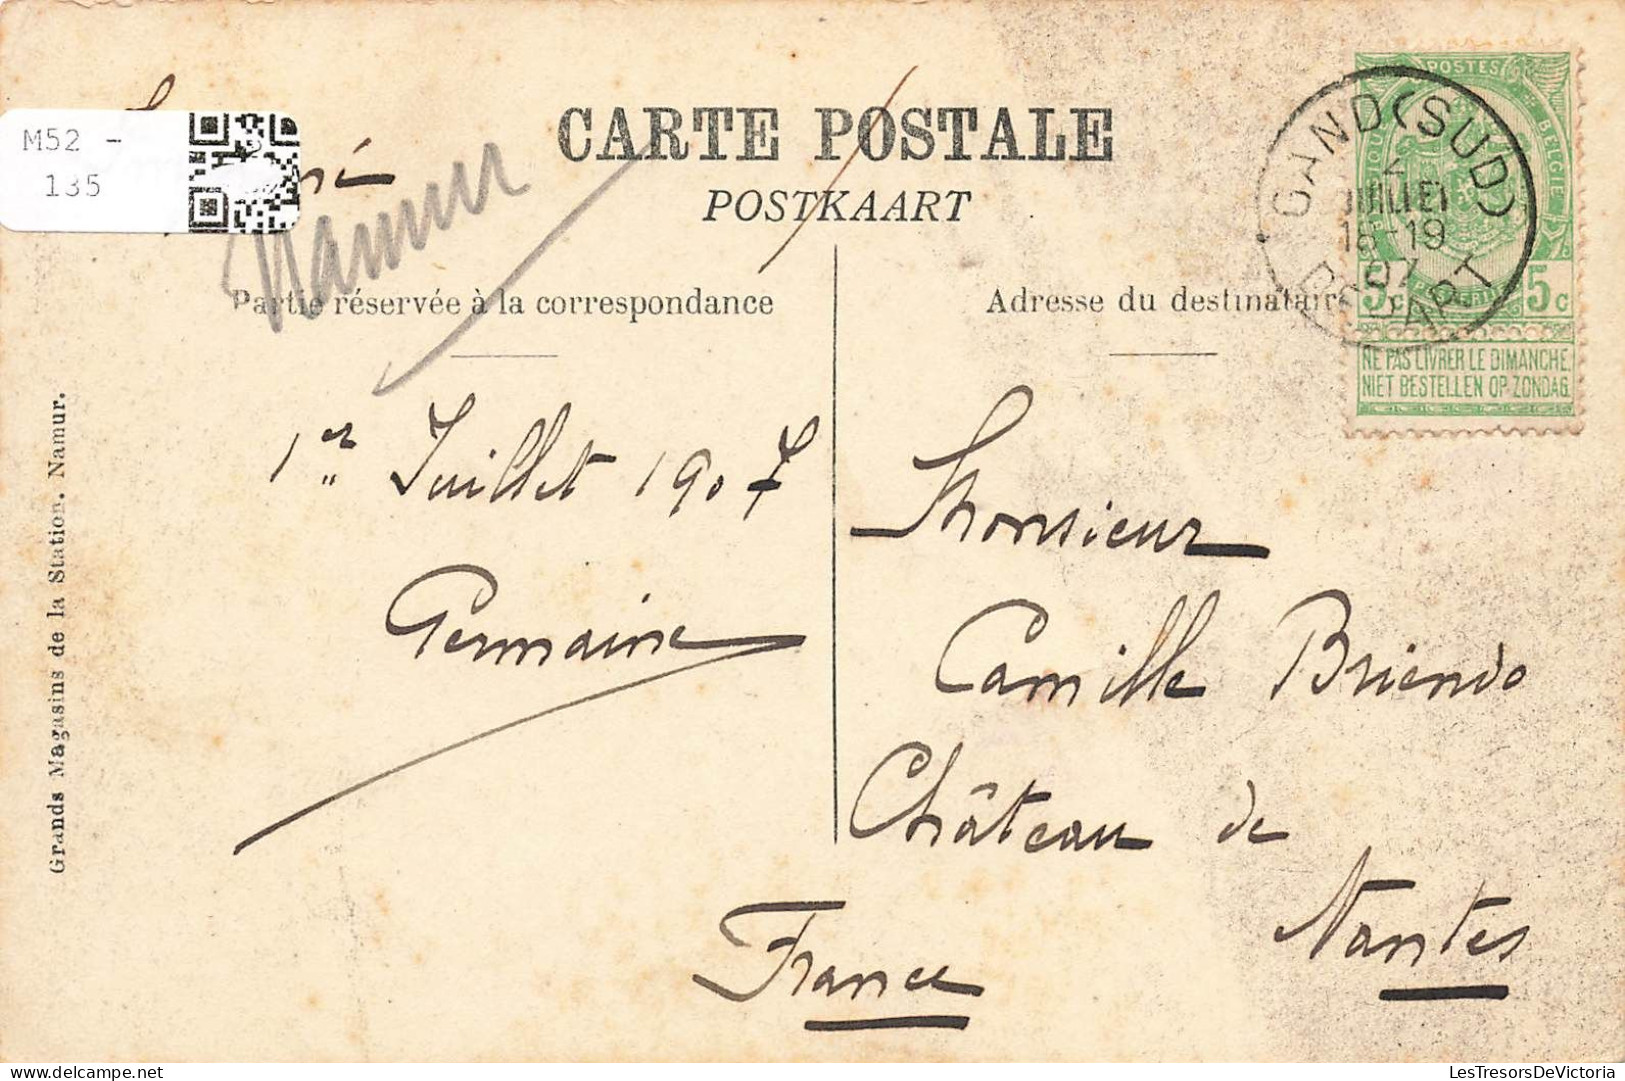 M52 -
135
CARTE POSTALE
POSTKAART
Namur
Partie réservée à la correspondance
Adresse du destinataire
POSTES
BELGIË
5c 5c
NE PAS LIVRER LE DIMANCHE.
NIET BESTELLEN OP ZONDAG.
GAND (SUD)
2
JUILLET
18-19
07
DÉPART
1er Juillet 1907
Germaine
Monsieur
Camille Briendo
Château de
Nantes
France
Grands Magasins de la Station. Namur.
LesTresorsDeVictoria